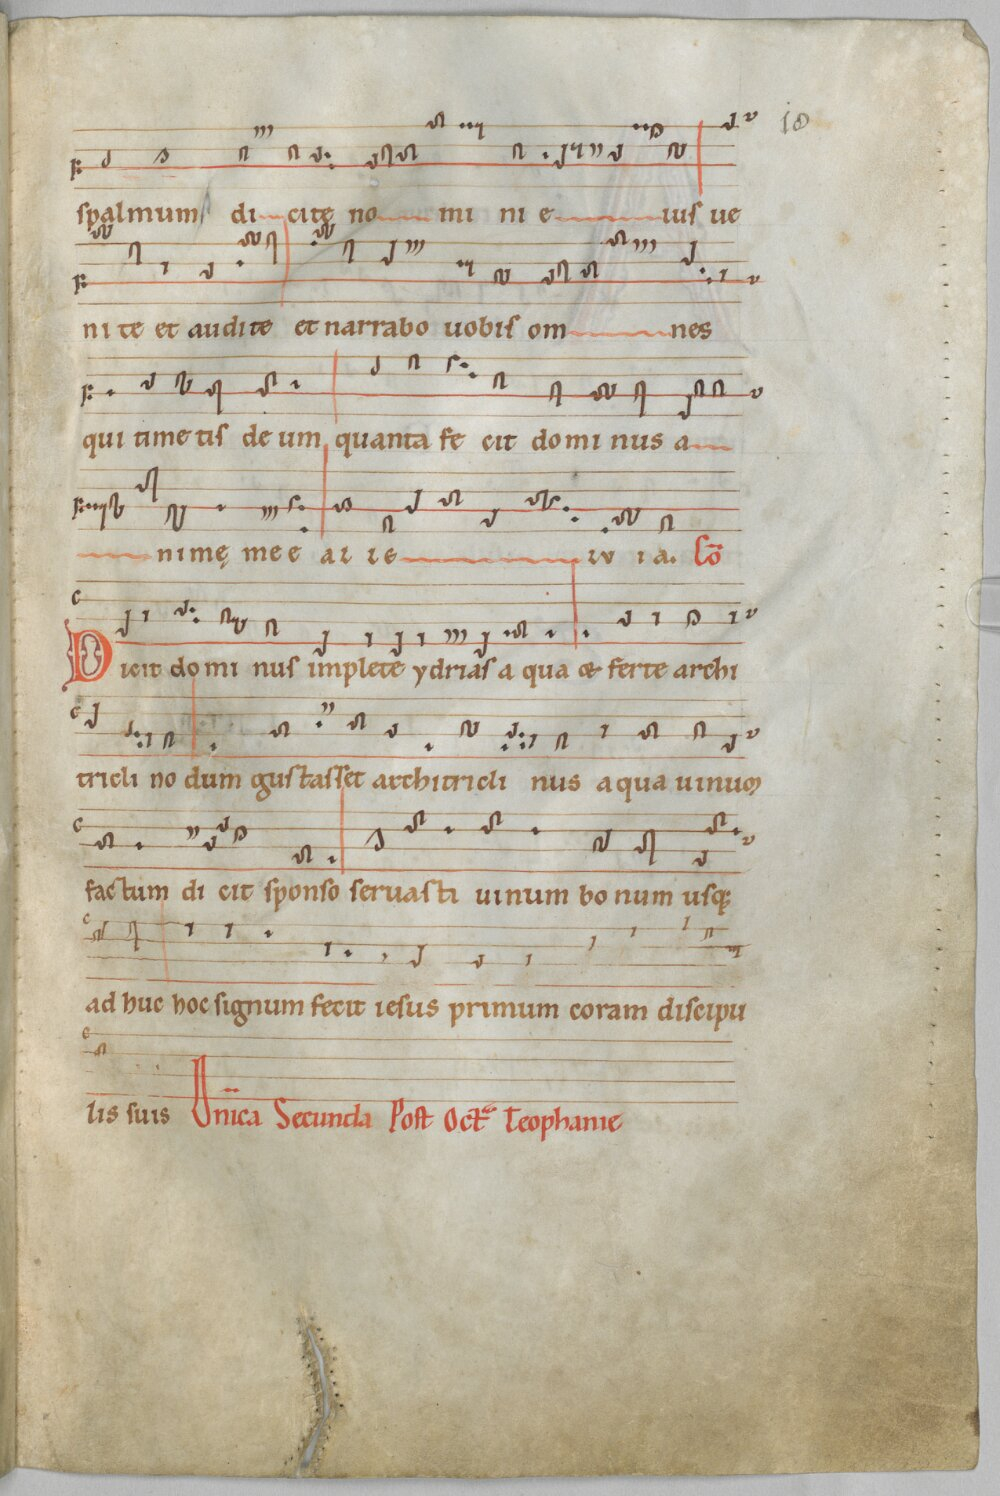 10
spalmum dicite nomini eius ue
nite et audite et narrabo uobis omnes
qui timetis deum quanta fecit dominus a
nimę mee alleluia. Cō
Dicit dominus implete ydrias aqua & ferte archi
triclino dum gustasset architriclinus aqua uinum
factum dicit sponso seruasti uinum bonum usq;
adhuc hoc signum fecit iesus primum coram discipu
lis suis Dn̄ica Secunda Post Oct̄ Teophanie